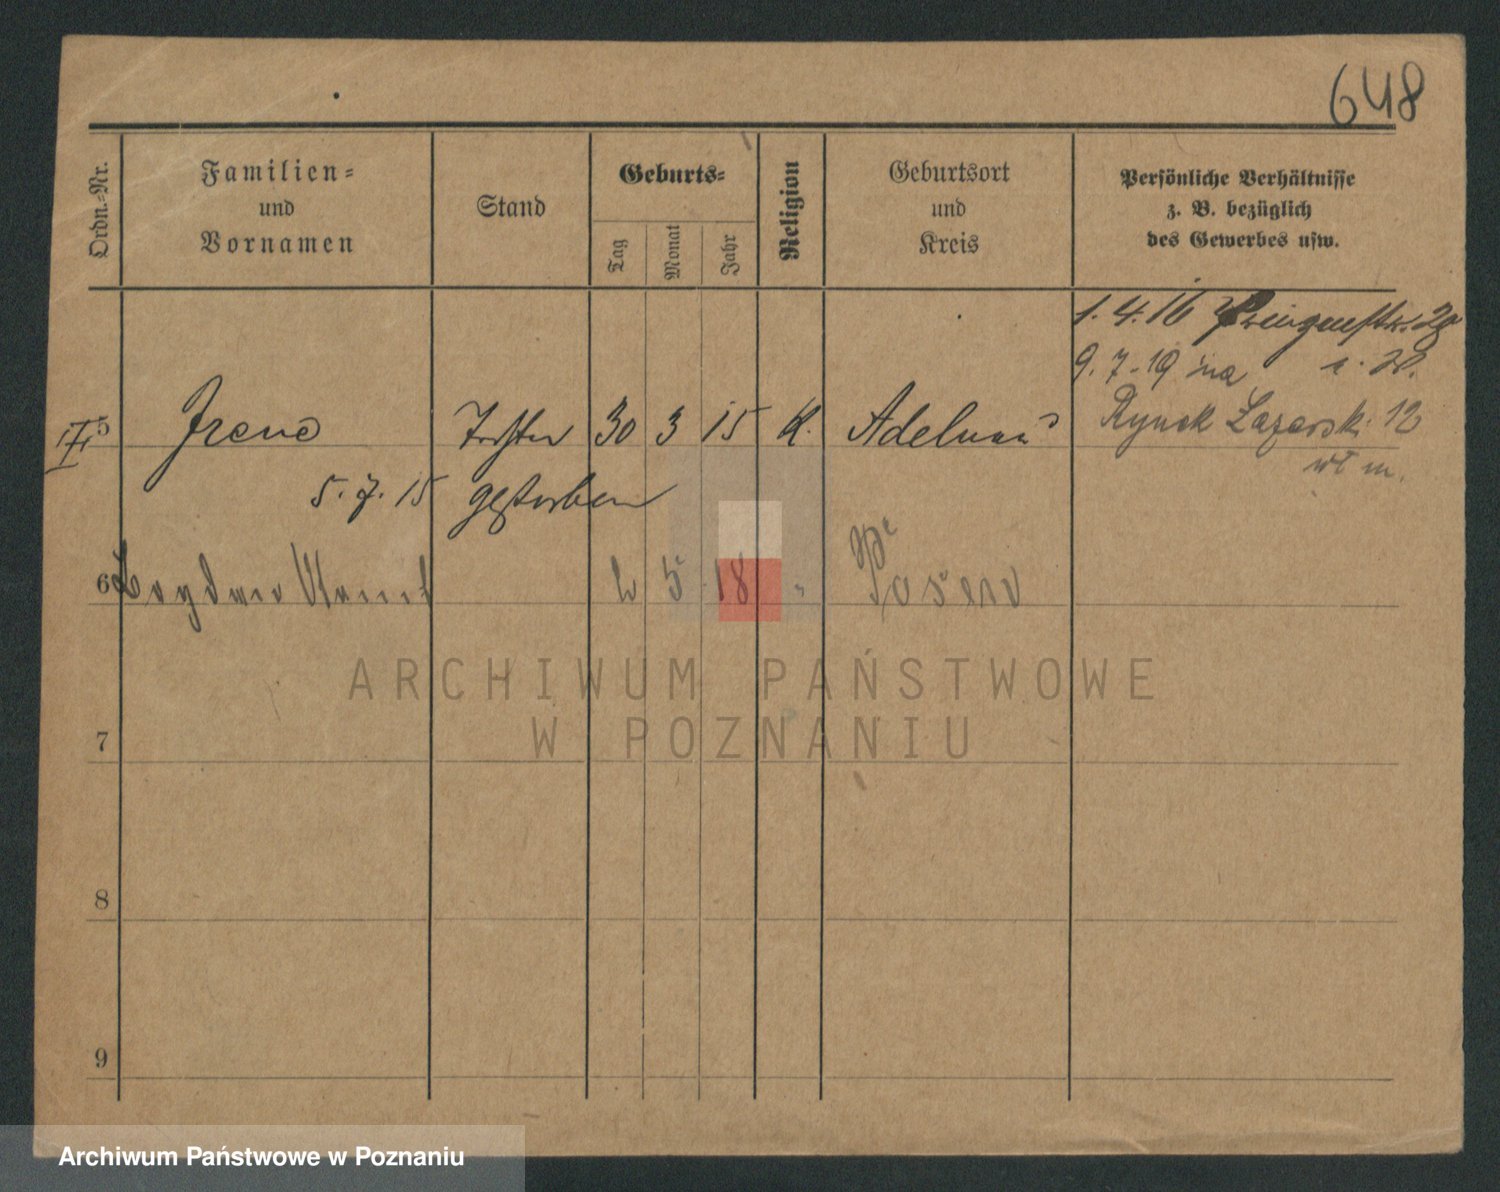 648
Ordn.-Nr.
Familien-
und
Vornamen
Stand
Geburts-
Tag
Monat
Jahr
Religion
Geburtsort
und
Kreis
Persönliche Verhältnisse
z. B. bezüglich
des Gewerbes usw.
1. 4. 16
9. 7. 19 na
5 Irene Tochter 30 3 15 K. Adelnau Rynek Łazarski 12
5. 7. 15 gestorben
6 5 18 Posen
ARCHIWUM PAŃSTWOWE
W POZNANIU
7
8
9
Archiwum Państwowe w Poznaniu